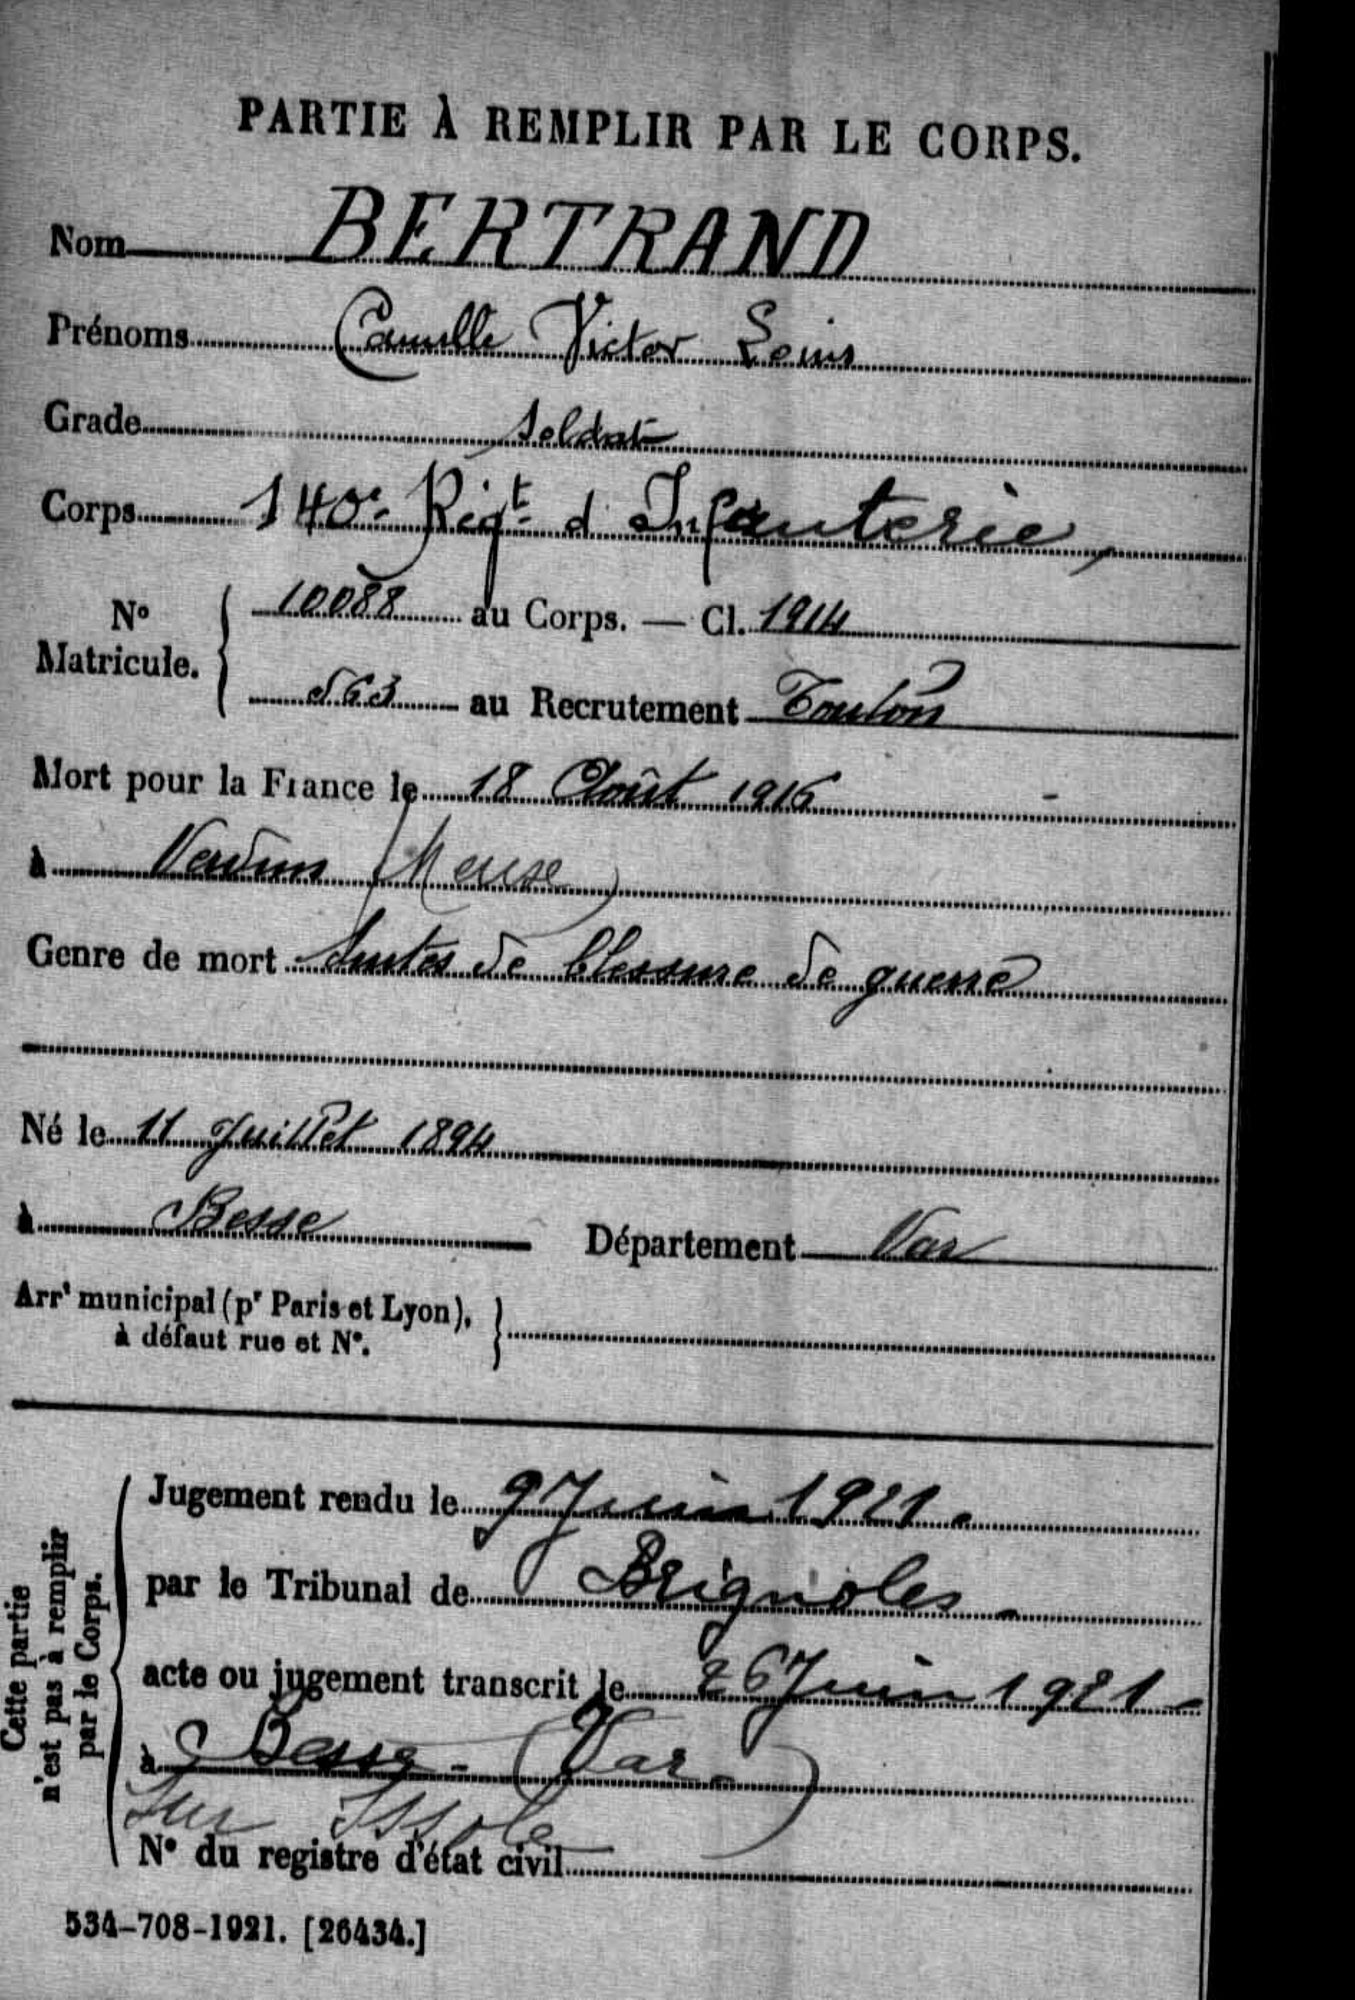 PARTIE À REMPLIR PAR LE CORPS.
Nom BERTRAND
Prénoms Camille Victor Louis
Grade Soldat
Corps 140e Régt d'Infanterie,
No Matricule. { 10088 au Corps. — Cl. 1914
563 au Recrutement Toulon
Mort pour la France le 18 Août 1916
à Verdun (Meuse)
Genre de mort Suites de blessure de guerre
Né le 11 Juillet 1894
à Besse Département Var
Arrt municipal (pr Paris et Lyon),
à défaut rue et No.
Cette partie
n'est pas à remplir
par le Corps.
Jugement rendu le 9 Juin 1921.
par le Tribunal de Brignoles -
acte ou jugement transcrit le 26 Juin 1921 -
à Besse - (Var -)
sur Issole
No du registre d'état civil
534-708-1921. [26434.]